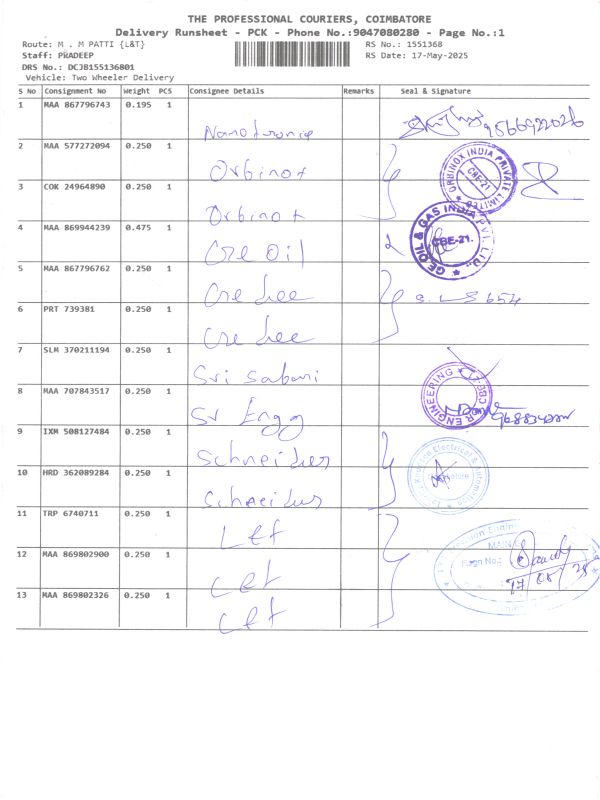 THE PROFESSIONAL COURIERS, COIMBATORE
Delivery Runsheet - PCK - Phone No.:9047080280 - Page No.:1
Route: M . M PATTI {L&T} RS No.: 1551368
Staff: PRADEEP RS Date: 17-May-2025
DRS No.: DCJB155136801
Vehicle: Two Wheeler Delivery
S No Consignment No Weight PCS Consignee Details Remarks Seal & Signature
1 MAA 867796743 0.195 1
Nanotronic 9566922026
2 MAA 577272094 0.250 1
Orbinox ORBINOX INDIA PRIVATE LIMITED CBE-21
3 COK 24964890 0.250 1
Orbinox
4 MAA 869944239 0.475 1
Gre Oil GE OIL & GAS INDIA PVT. LTD. CBE-21.
5 MAA 867796762 0.250 1
6 PRT 739381 0.250 1
7 SLM 370211194 0.250 1
Sri Sabari
8 MAA 707843517 0.250 1
Sr Engg R ENGINEERING
9 IXM 508127484 0.250 1
Schneider
10 HRD 362089284 0.250 1
Schneider
11 TRP 6740711 0.250 1
L&T
12 MAA 869802900 0.250 1
L&T
13 MAA 869802326 0.250 1
L&T